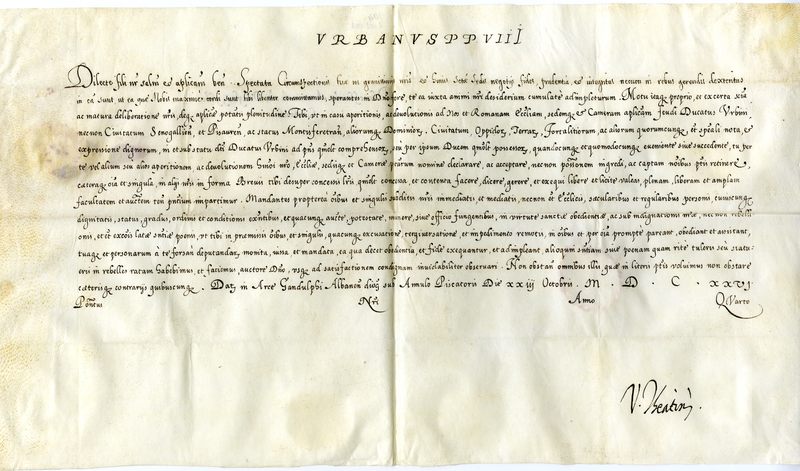 VRBANVS PP VIII
Dilecte fili nr salm et aplicam ben. Spectata Circumspectionis tuæ in gravissimis nris et huius Sctæ Sedis negotijs fides, prudentia, et integritas necnon in rebus gerendis dexteritas
in ea sunt ut ea quæ Nobis maxime cordi sunt tibi libenter committamus, sperantes in Dno fore, te ea iuxta animi nri desiderium cumulate adimpleturum. Motu itaq proprio, et ex certa scia
ac matura deliberatione nris, deq aplicæ potatis plenitudine Tibi, ut in casu aperitionis, ac devolutionis ad Nos et Romanam Eccliam, Sedemq et Cameram aplicam feudi Ducatus Vrbini
necnon Civitatum Senogallien, et Pisauren, ac status Montisferetran, aliorumq Dominior, Civitatum, Oppidor, Terrar, Fortalitiorum, ac alior quorumcunq, et speali nota, et
expressione dignorum, in et sub statu dti Ducatus Vrbini ad pns qmlt comprehensor, seu per ipsum Ducem qmlt possessor, quandocunq et quomodocunq evenerit sive succederit, tu per
te vel alium seu alios aperitionem ac devolutionem huiusmoi nro, Eccliæ, Sedisq et Cameræ ptarum nomine declarare, ac acceptare, necnon possonem ingredi, ac captam nobis ptis retinere,
cæteraq oia et singula, in alijs nris in forma Brevis tibi desuper concessis lris qmlt concessa, et contenta facere, dicere, gerere, et exequi libere et licite valeas, plenam, liberam et amplam
facultatem et auctem tenore pntium impartimur. Mandantes propterea oibus et singulis subditis nris immediatis, et mediatis, necnon et Ecclicis, sæcularibus et regularibus personis, cuiuscunq
dignitatis, status, gradus, ordinis et conditionis existibus, et quacunq aucte, potestate, munere, sive officio fungentibus, in virtute sanctæ obedientiæ, ac sub indignationis nræ, necnon rebelli-
onis, et et excois latæ sentiæ poenis, ut tibi in præmissis oibus, et singulis, quacunq excusatione, tergiversatione, et impedimento remotis, in oibus et per oia prompte pareant, obediant et assistant,
tuaq et personarum a te forsan deputandar, monita, iussa, et mandata, ea qua decet obedientia, et fide exequantur, et adimpleant, alioquin sntiam sive poenam quam rite tuleris seu statu-
eris in rebelles ratam habebimus, et faciemus, auctore Dno, usq ad satisfactionem condignam inviolabiliter observari. Non obstan omnibus illis quæ in literis ptis volumus non obstare
cæterisq contrarijs quibuscunq. Dat, in Arce Gandulphi Albanen dioc sub Annulo Piscatoris Die xxiij Octobris. M. D. C. XXVI.
Pontus Nri Anno Quarto
V. Theatin,